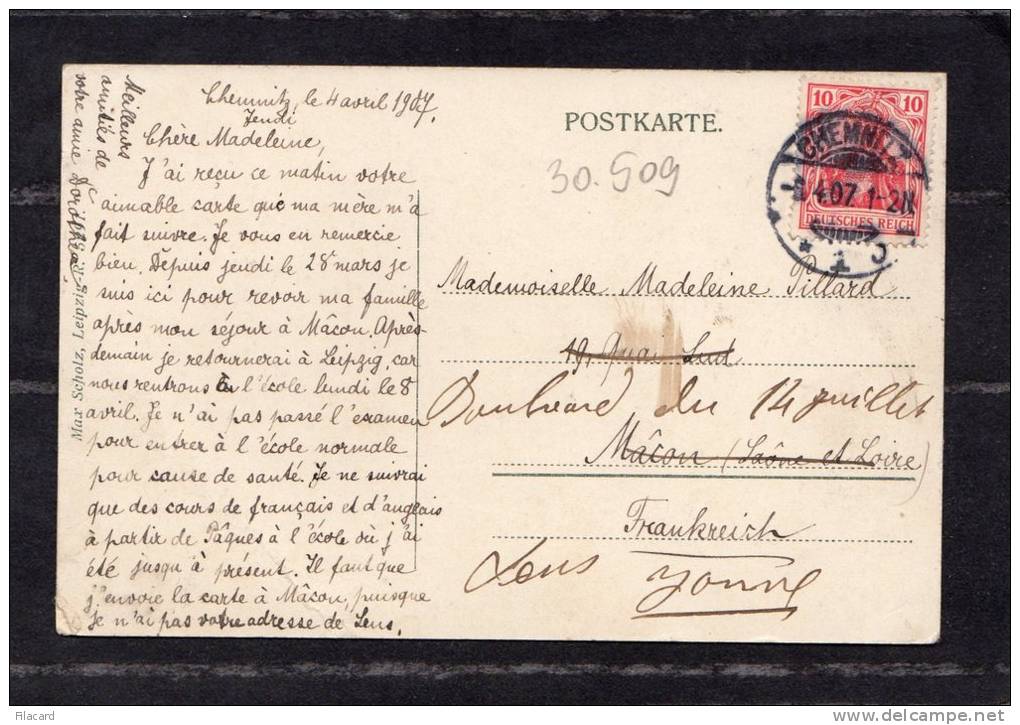 Chemnitz, le 4 avril 1907.
Jeudi
Chère Madeleine,
J'ai reçu ce matin votre
aimable carte que ma mère m'a
fait suivre. Je vous en remercie
bien. Depuis jeudi le 28 mars je
suis ici pour revoir ma famille
après mon séjour à Mâcon. Après-
demain je retournerai à Leipzig, car
nous rentrons à l'école lundi le 8
avril. Je n'ai pas passé l'examen
pour entrer à l'école normale
pour cause de santé. Je ne suivrai
que des cours de français et d'anglais
à partir de Pâques à l'école où j'ai
été jusqu'à présent. Il faut que
j'envoie la carte à Mâcon, puisque
je n'ai pas votre adresse de Sens.
Meilleurs
amitiés de
votre amie Dorothea
Max Scholz, Leipzig
POSTKARTE.
30.509
10 10
DEUTSCHES REICH
CHEMNITZ
4.07. 1-2N
1
Mademoiselle Madeleine Pillard
19, Quai Sud
Boulevard du 14 juillet
Mâcon (Saône et Loire)
Frankreich
Sens
Yonne
Filacard
http://www.delcampe.net